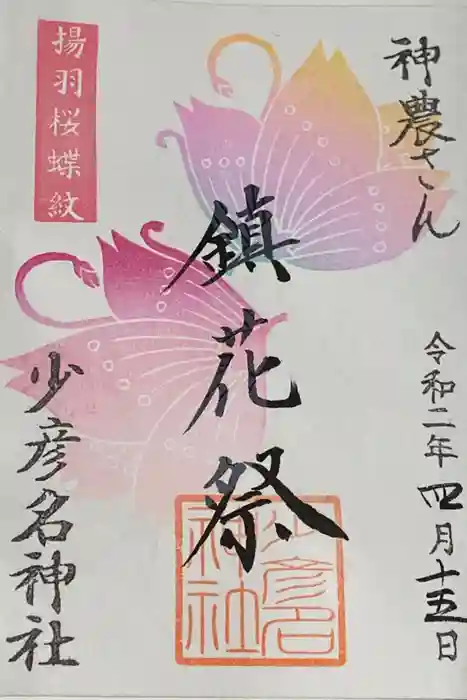 神農さん
令和二年四月十五日
鎮花祭
少彦名神社
揚羽桜蝶紋
少彦名神社